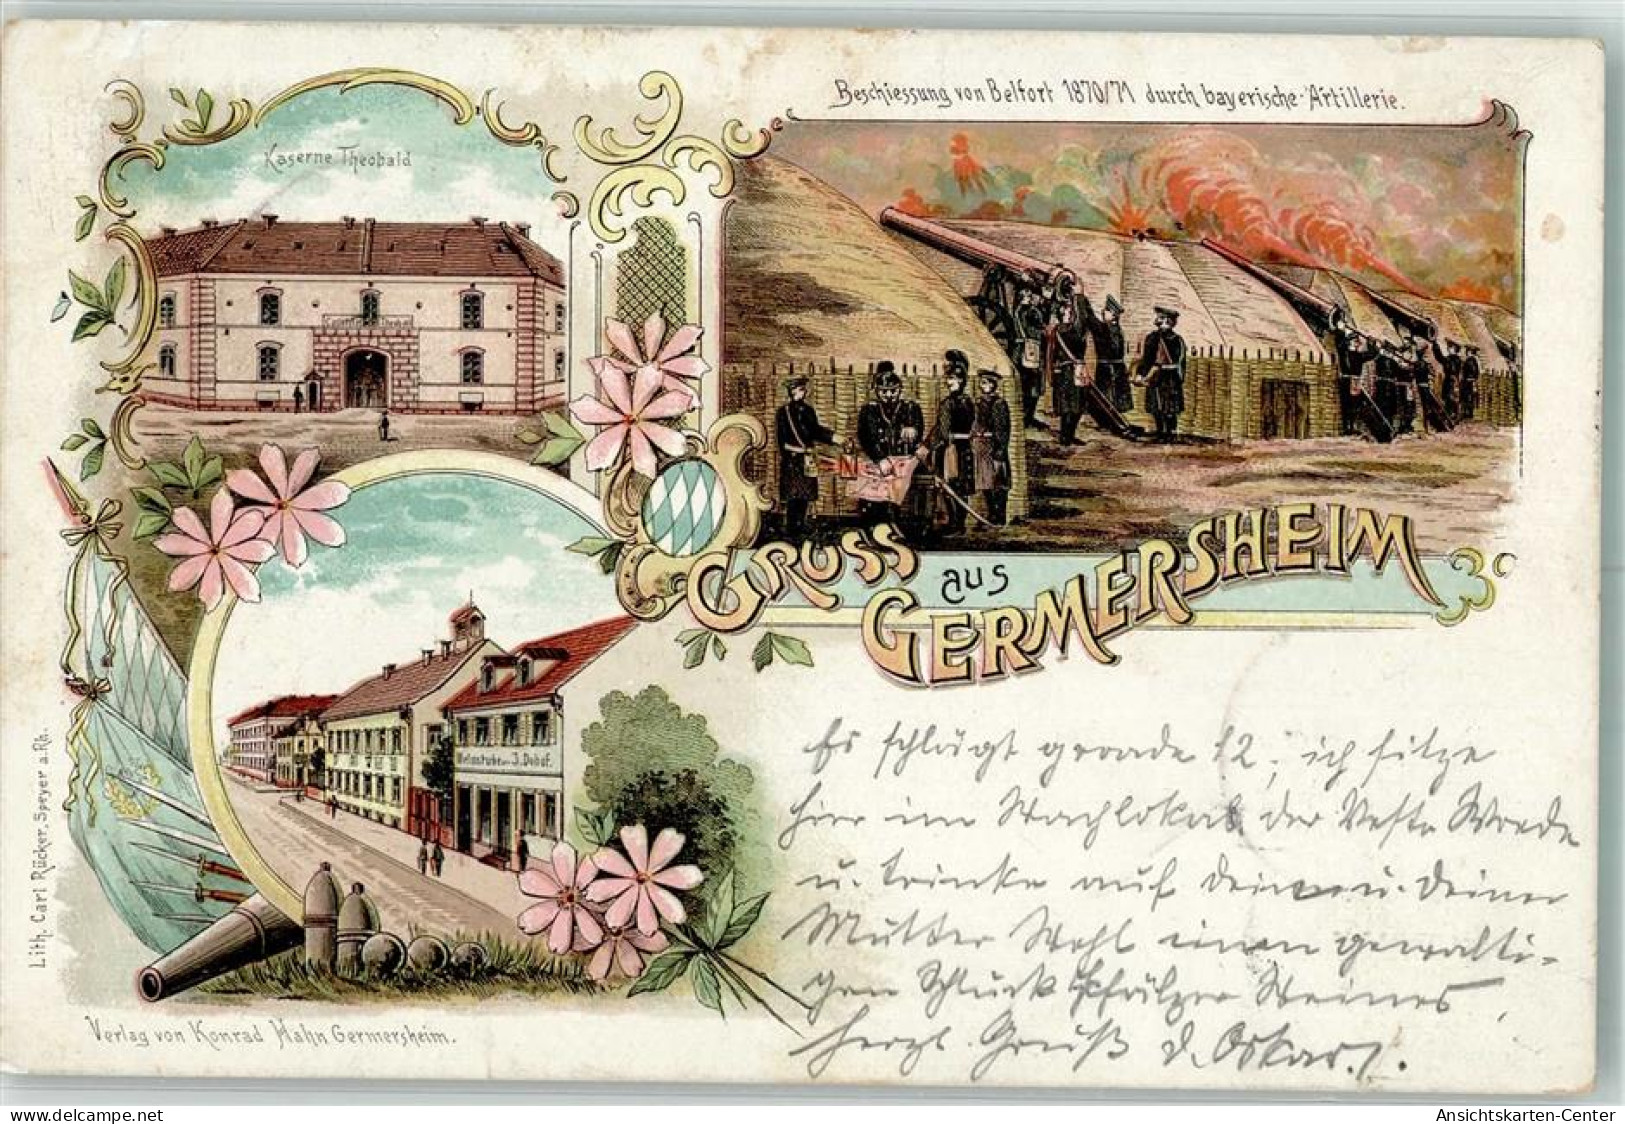 Beschiessung von Belfort 1870/71 durch bayerische Artillerie.
Kaserne Theobald
Weinstube v. J. Dobof.
GRUSS
aus
GERMERSHEIM
Lith. Carl Rücker, Speyer a. Rh.
Verlag von Konrad Hahn Germersheim.
Es schlägt gerade 12, ich sitze
hier im Wachlokal der Veste
u. trinke auf Dein u. Deiner
Mutter Wohl einen gewalti-
gen Schluck Pfälzer Weines,
herzl. Gruß d. Oskar.
www.delcampe.net
Ansichtskarten-Center